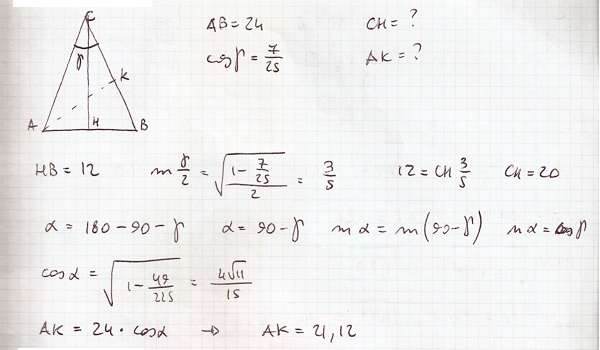 C
γ
K
A H B
AB = 24 CH = ?
cos γ = 7/25 AK = ?
HB = 12 sin γ/2 = √((1 - 7/25)/2) = 3/5 12 = CH 3/5 CH = 20
α = 180 - 90 - γ α = 90 - γ sin α = sin (90 - γ) sin α = cos γ
cos α = √(1 - 49/225) = 4√11/15
AK = 24 · cos α → AK = 21,12